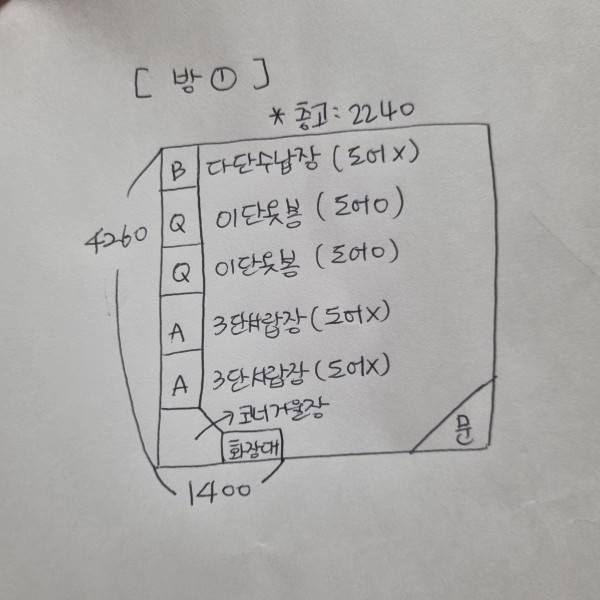 [ 방① ]
* 층고: 2240
B 다단수납장 (도어X)
Q 이단옷봉 (도어O)
4260
Q 이단옷봉 (도어O)
A 3단서랍장 (도어X)
A 3단서랍장 (도어X)
→코너거울장
화장대
문
1400